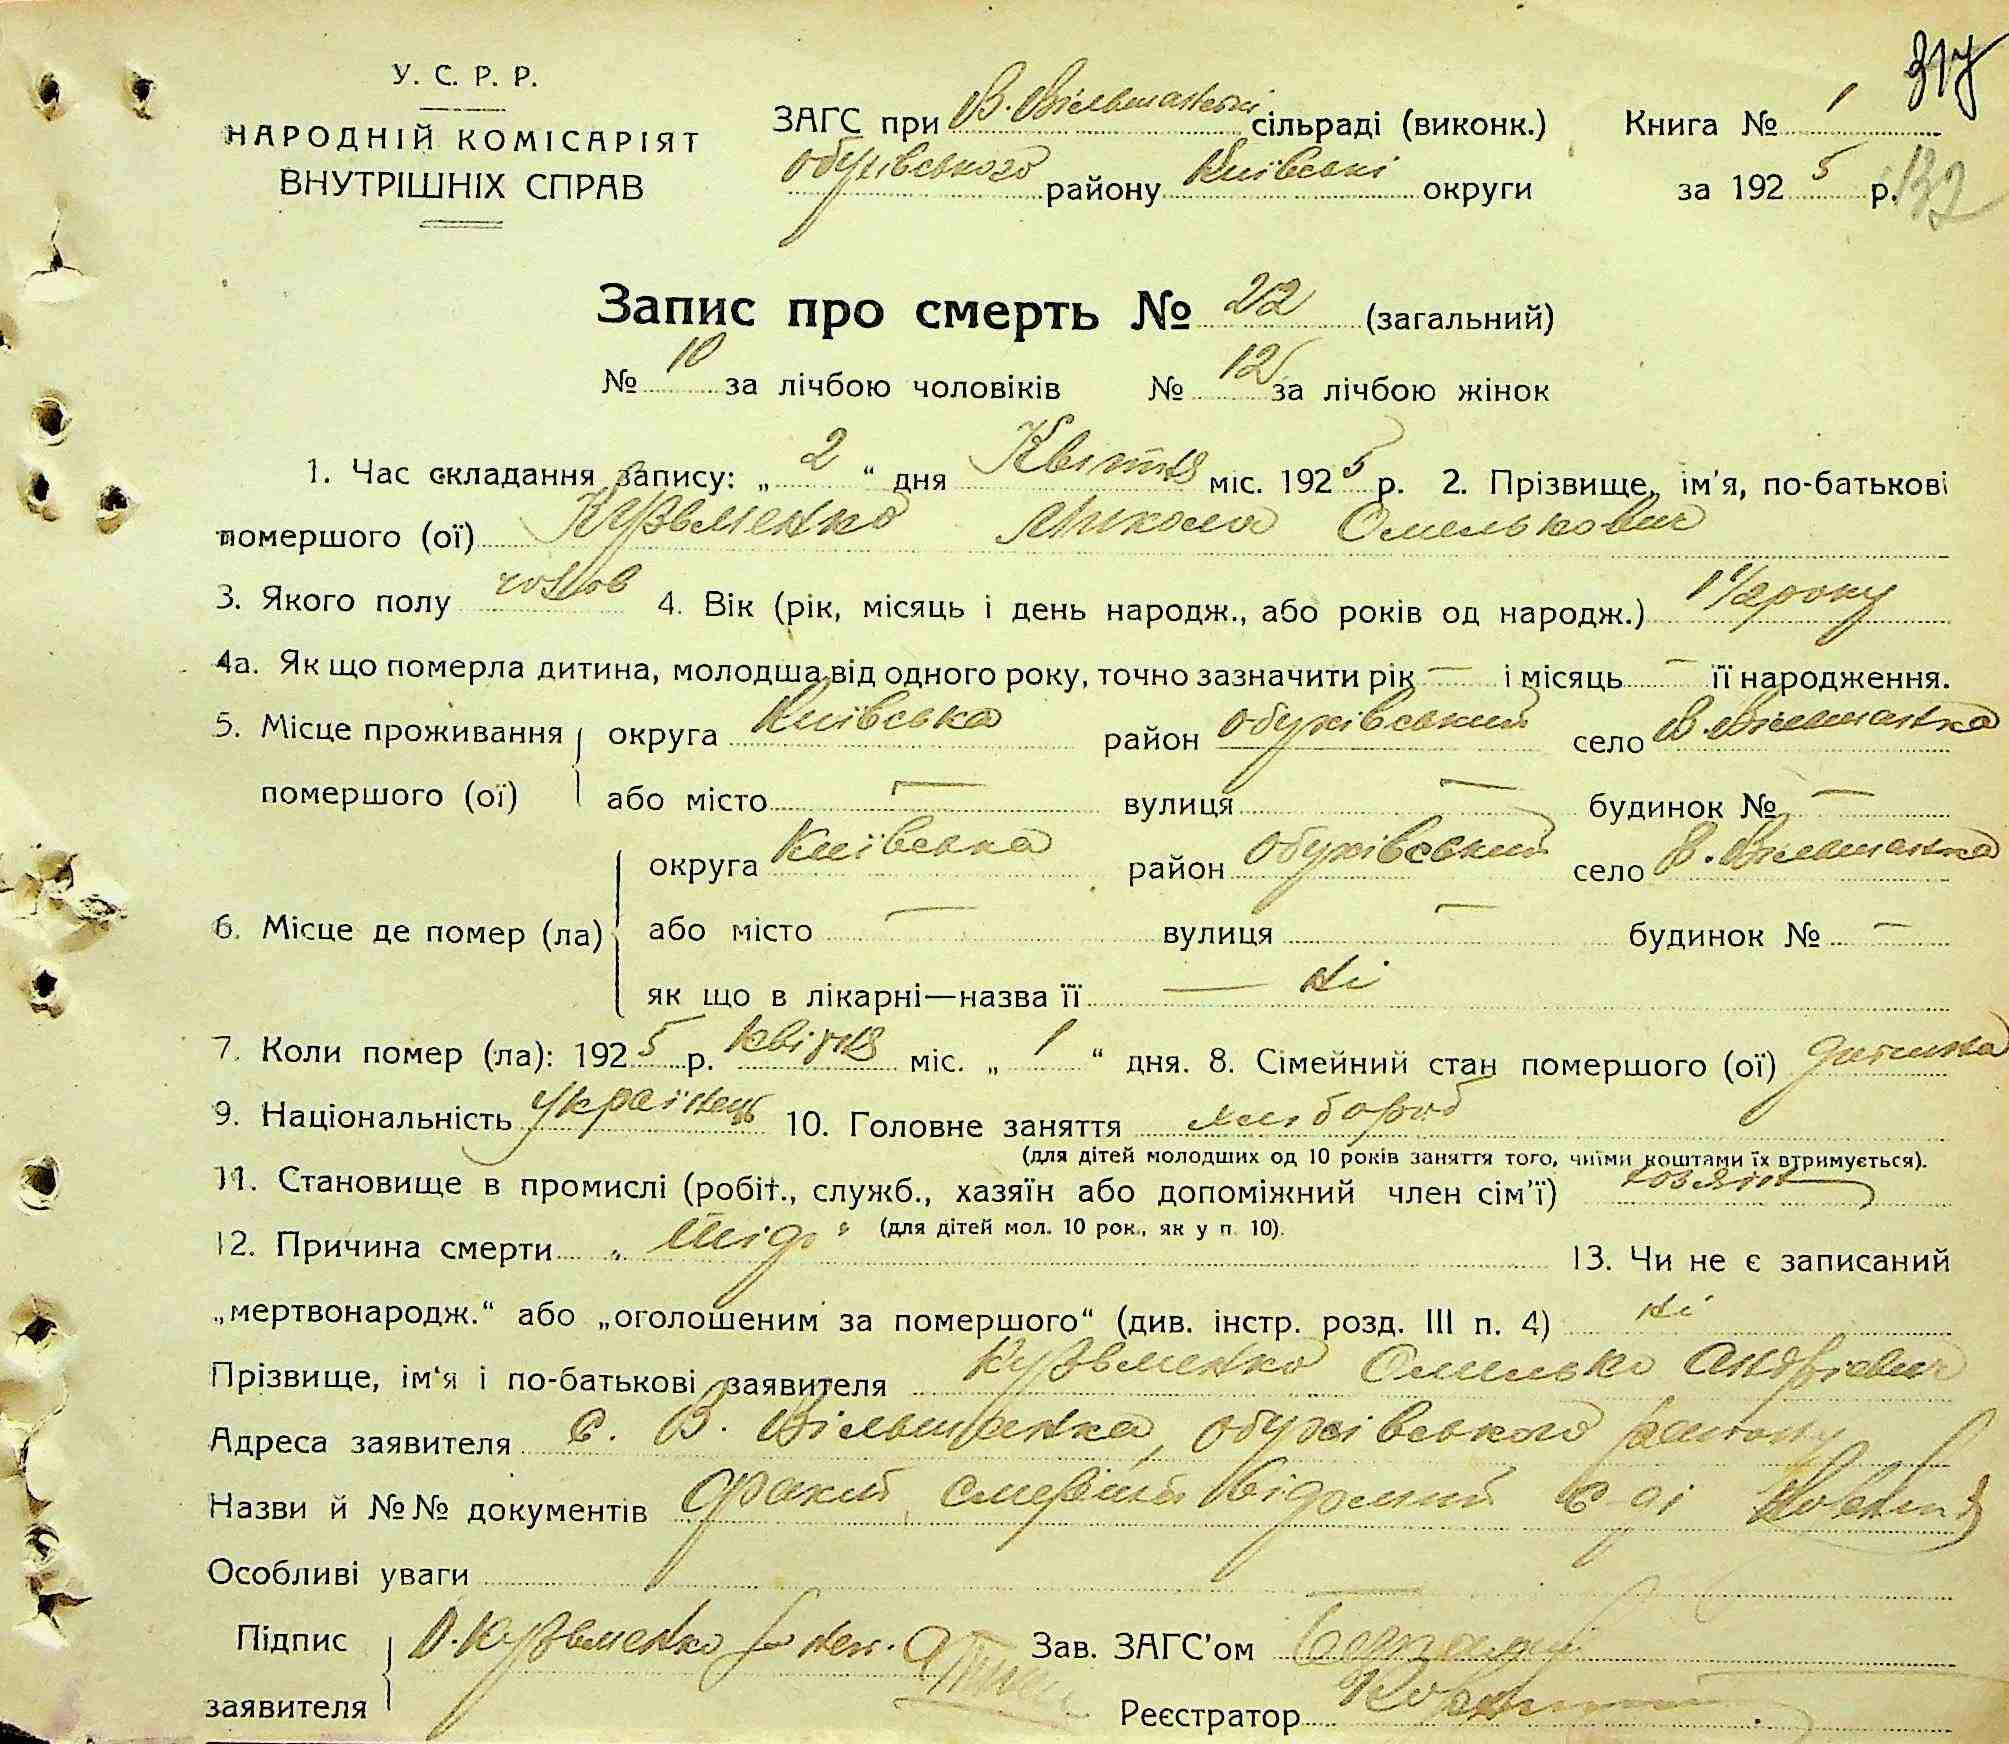 317
У. С. Р. Р.
НАРОДНІЙ КОМІСАРІЯТ
ВНУТРІШНІХ СПРАВ
ЗАГС при В. Вільшанські сільраді (виконк.)
Обухівського району Київські округи
Книга № 1
за 1925 р.
132
Запис про смерть № 22 (загальний)
№ 10 за лічбою чоловіків № 12 за лічбою жінок
1. Час складання запису: „ 2 “ дня Квітня міс. 1925 р. 2. Прізвище, ім'я, по-батькові
помершого (ої) Кузьменко Микола Омелькович
3. Якого полу чолов 4. Вік (рік, місяць і день народж., або років од народж.) 1 1/2 року
4а. Як що померла дитина, молодша від одного року, точно зазначити рік — і місяць — її народження.
5. Місце проживання округа Київська район Обухівський село В. Вільшанка
помершого (ої) або місто — вулиця — будинок № —
округа Київська район Обухівський село В. Вільшанка
6. Місце де помер (ла) або місто — вулиця — будинок № —
як що в лікарні—назва її — ні
7. Коли помер (ла): 1925 р. квітня міс. „ 1 “ дня. 8. Сімейний стан помершого (ої) дитина
9. Національність Українець 10. Головне заняття хлібороб
(для дітей молодших од 10 років заняття того, чиїми коштами їх втримується).
11. Становище в промислі (робіт., служб., хазяїн або допоміжний член сім'ї) хозяїн
(для дітей мол. 10 рок., як у п. 10).
12. Причина смерти 13. Чи не є записаний
„мертвонародж.“ або „оголошеним за помершого“ (див. інстр. розд. III п. 4) ні
Прізвище, ім'я і по-батькові заявителя Кузьменко Омелько Андрієвич
Адреса заявителя с. В. Вільшанка, Обухівського району
Назви й №№ документів факт смерти відомий с-ді
Особливі уваги —
Підпис
заявителя
О. Кузьменко
Зав. ЗАГС'ом
Реєстратор